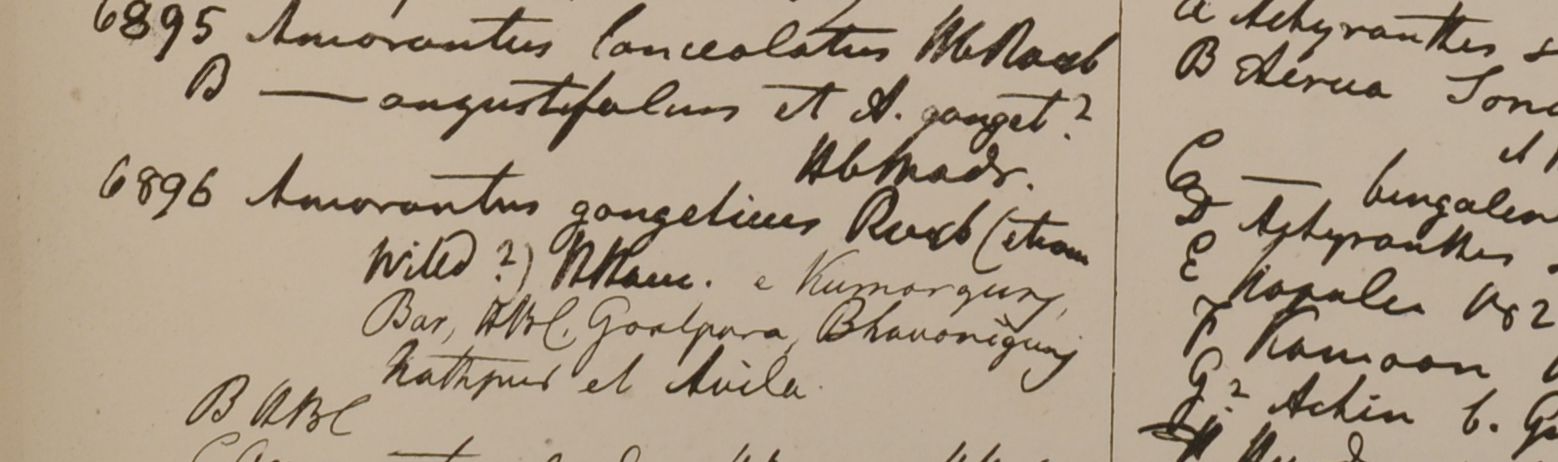 6895 Amarantus lanceolatus Hb Roxb
B — angustifolius et A. ganget?
Hb Madr.
6896 Amarantus gangeticus Roxb (etiam
Willd ?) HHam. e Kumargunj,
Bar, HBC, Goalpara, Bhavanigunj
Nathpur et Avila
B HBC
a Achyranthes
B Aerua
C — bengalen
D Achyranthes
E Napalea 1821
F Kamaon
G? Achin
H